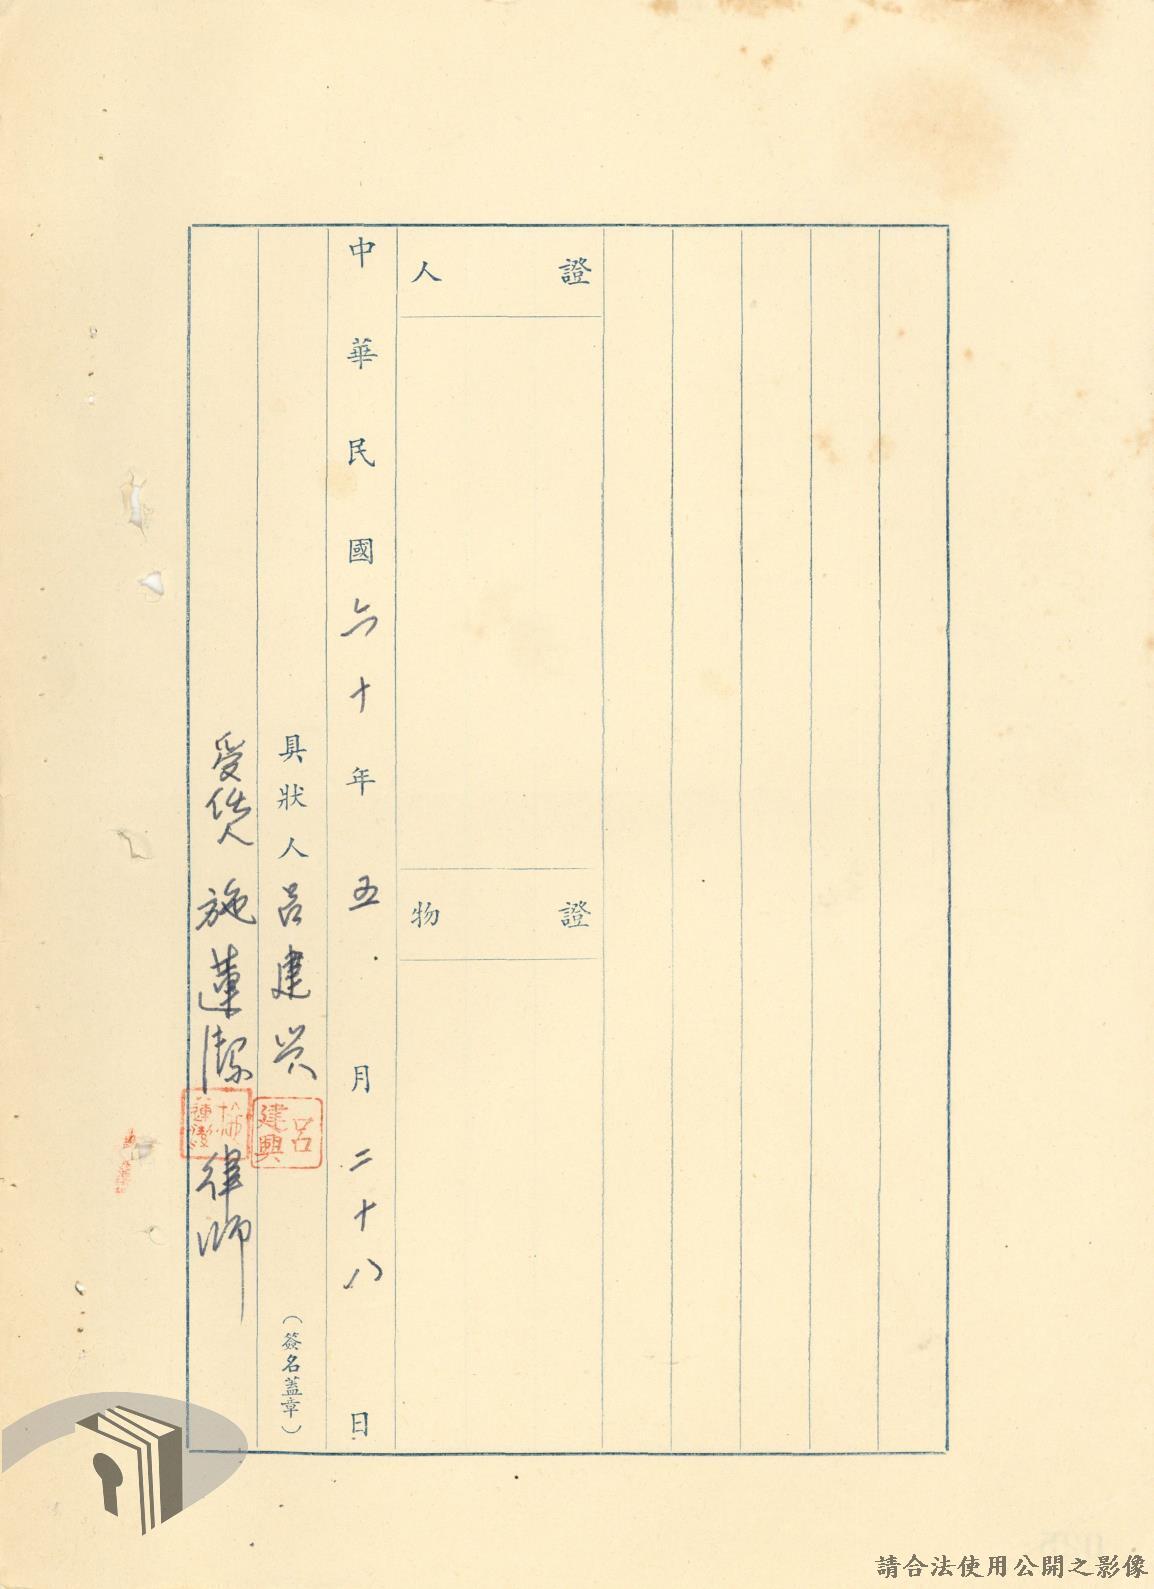 證人
證物
中華民國六十年五月二十八日
具狀人呂建兴
(簽名蓋章)
呂建興
施蓮潔律師
請合法使用公開之影像